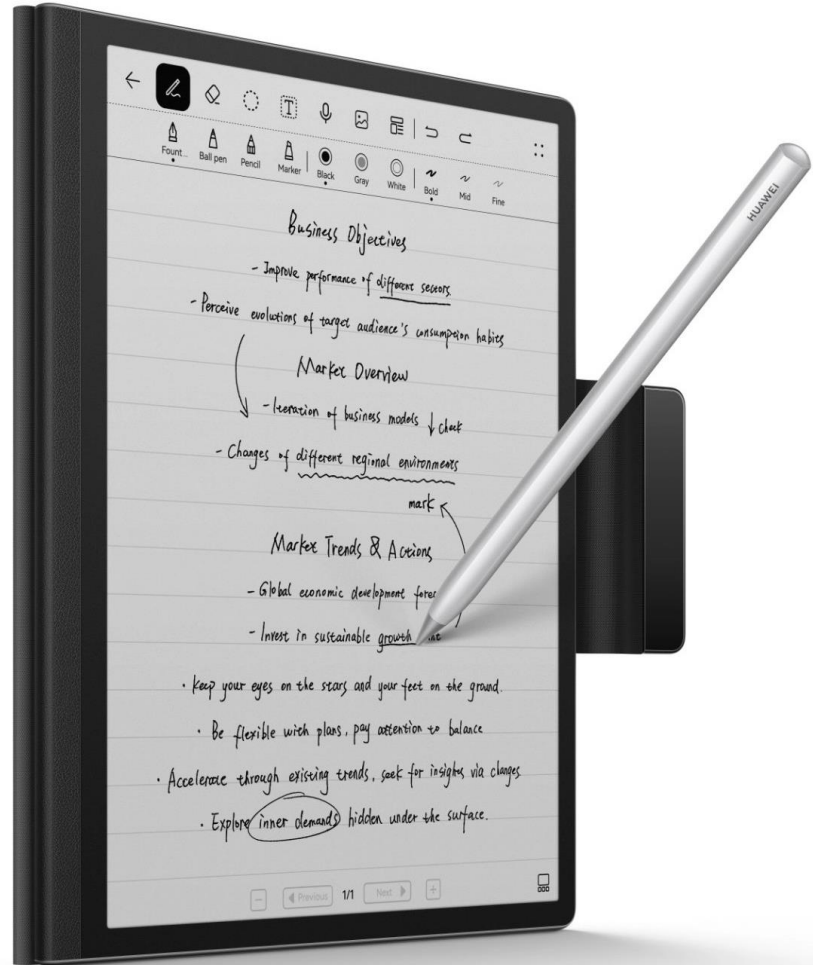 Fount... Ball pen Pencil Marker Black Gray White Bold Mid Fine
HUAWEI
Business Objectives
- Improve performance of different sectors.
- Perceive evolutions of target audience's consumption habits
Market Overview
- Iteration of business models ↓ check
- Changes of different regional environments
mark
Market Trends & Actions
- Global economic development
- Invest in sustainable growth
· Keep your eyes on the stars and your feet on the ground.
· Be flexible with plans, pay attention to balance
· Accelerate through existing trends, seek for insights via changes
· Explore inner demands hidden under the surface.
Previous 1/1 Next